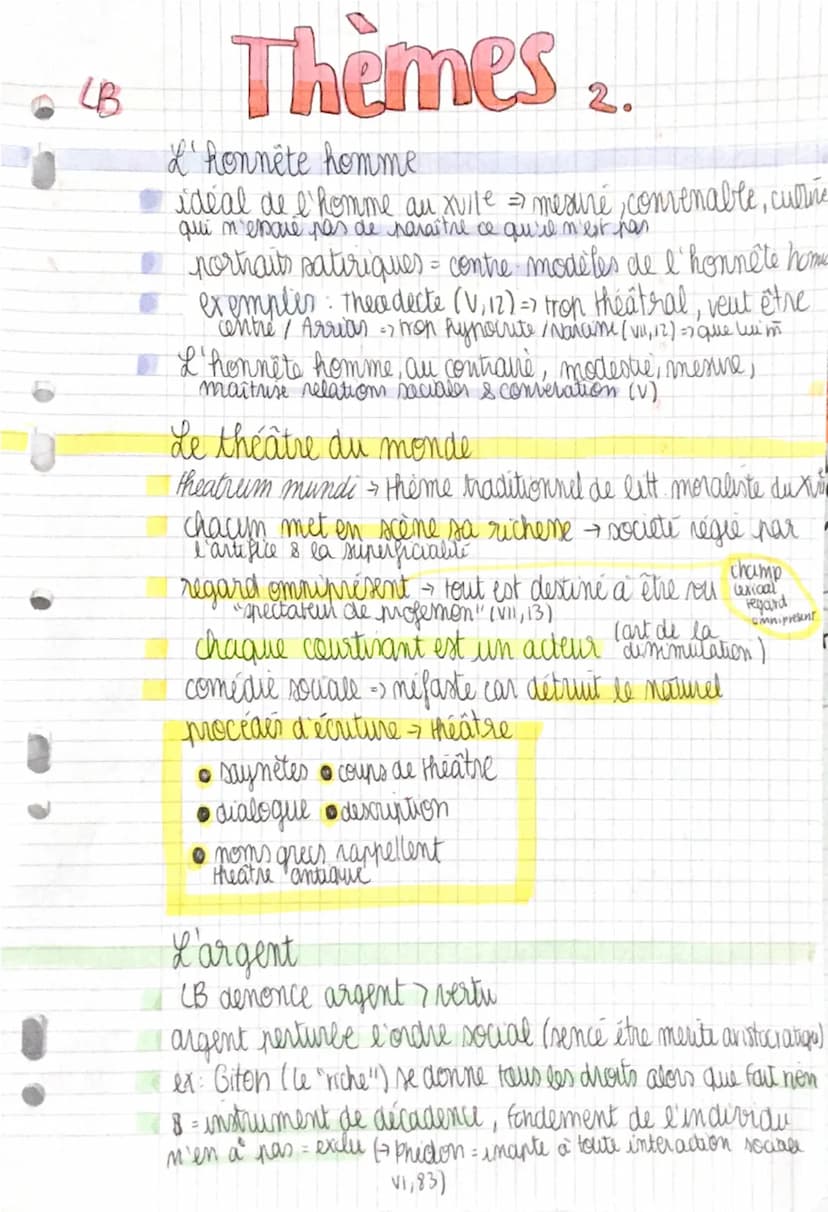 Thèmes 2.
LB
L'honnête homme
idéal de l'homme au XVIIe => mesuré, convenable, cultivé
qui n'essaie pas de paraître ce qu'il n'est pas
portraits satiriques = contre-modèles de l'honnête homme
exemples : Theodecte (V,12) => trop théâtral, veut être
centre / Arrias => trop hypocrite / Narcisse (VII,12) => que lui m̄
L'honnête homme, au contraire, modestie, mesure,
maîtrise relations sociales & conversation (V)
Le théâtre du monde
theatrum mundi → thème traditionnel de litt. moraliste du XVII
chacun met en scène sa richesse → société régie par
l'artifice & la superficialité
regard omniprésent → tout est destiné à être vu
"spectateur de profession" (VII,13)
champ
lexical
regard
omniprésent
chaque courtisant est un acteur (art de la
dissimulation)
comédie sociale => néfaste car détruit le naturel
procédés d'écriture → théâtre
• saynètes • coups de théâtre
• dialogue • description
• noms grecs rappellent
théâtre antique
L'argent
LB dénonce argent > vertu
argent perturbe l'ordre social (sencé être mérite aristocratique)
ex : Giton (le "riche") se donne tous les droits alors que fait rien
& = instrument de décadence, fondement de l'individu
n'en a pas = exclu (→ Phédon = inapte à toute interaction sociale
VI,83)